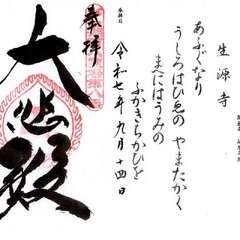 生源寺
あふぐなり
うしろはひゑの やまたかく
まへにはうみの
ふかきちかひを
令和七年九月十四日
奉拝
大悲殿